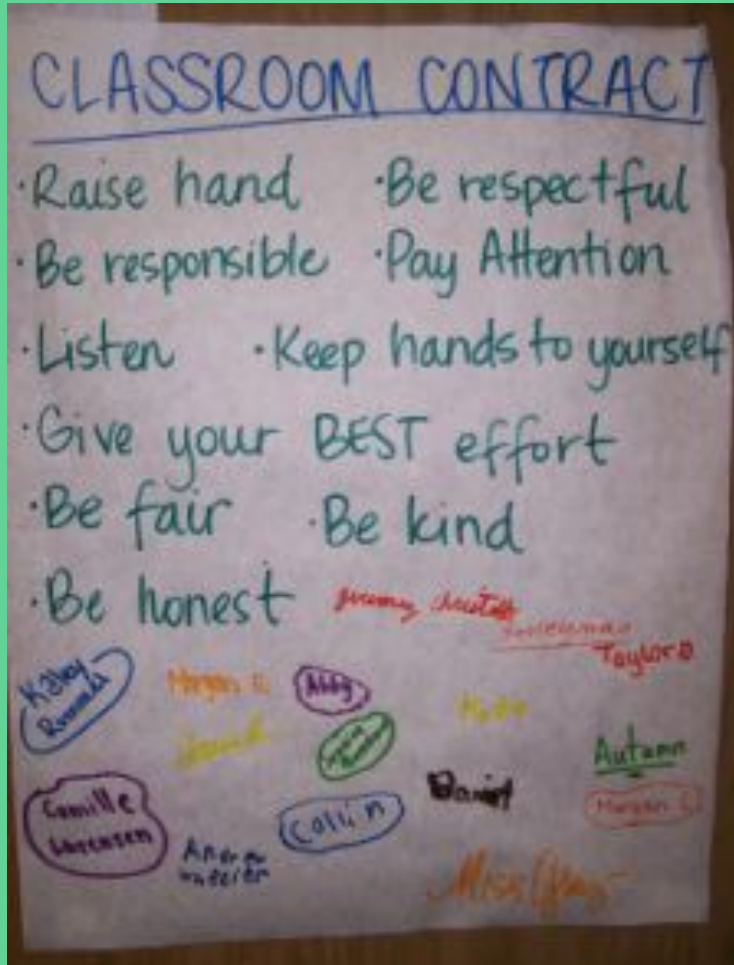 CLASSROOM CONTRACT
·Raise hand ·Be respectful
·Be responsible ·Pay Attention
·Listen ·Keep hands to yourself
·Give your BEST effort
·Be fair ·Be kind
·Be honest
Taylor
Kaley
Morgan Abby
Autumn
Camille Sorensen
Collin
Daniel
Morgan
Andrew Wheeler
Miss